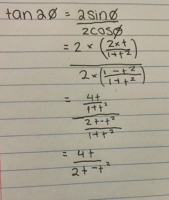 tan 2ø = 2sinø / 2cosø
= 2 × (2×t / 1+t²) / 2×(1-t² / 1+t²)
= 4t / 1+t² / 2-t² / 1+t²
= 4t / 2-t²